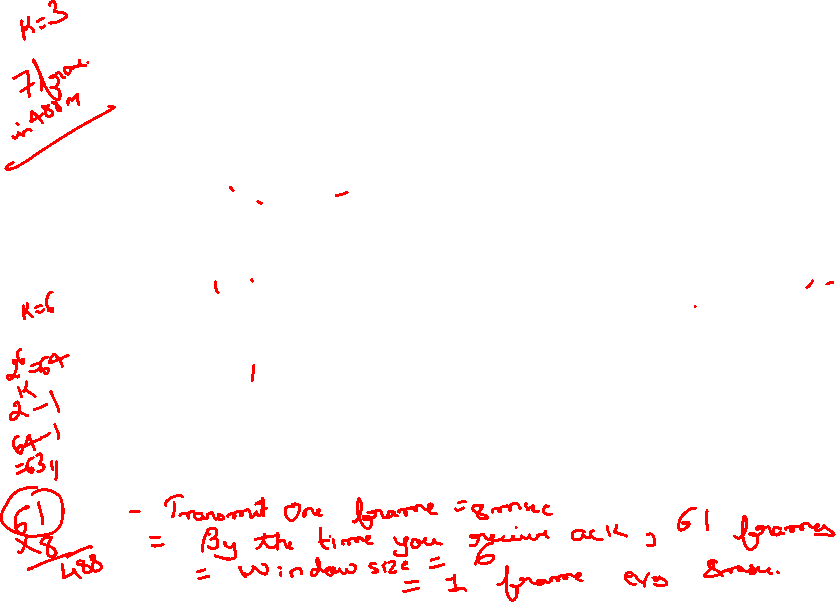 K=3
7 frame
in 488 m
K=6
2^6=64
2^K-1
64-1
=63,,
61
×8
488
- Transmit One frame = 8msec
= By the time you receive ack, 61 frames
= Window size = 6
= 1 frame evs 8msec.